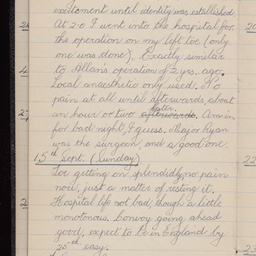 excitement until identity was established.
At 2.0 I went into the hospital for
the operation on my left toe (only
one was done). Exactly similar
to Allan's operation of 2 yrs. ago.
Local anaesthetic only used. No
pain at all until afterwards, about
an hour or two later. Am in
for bad night, I guess. Major Ryan
was the surgeon and a good one.
15th Sept. (Sunday)
Toe getting on splendidly, no pain
now, just a matter of resting it.
Hospital life not bad, though a little
monotonous. Convoy going ahead
good, expect to be in England by
25th easy.